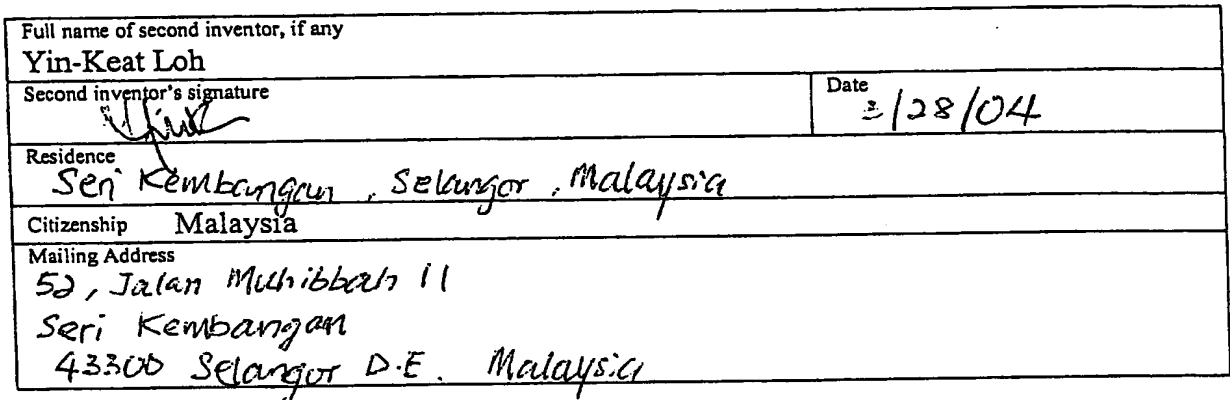 Full name of second inventor, if any
Yin-Keat Loh
Second inventor's signature
Date
3/28/04
Residence
Seri Kembangan, Selangor, Malaysia
Citizenship Malaysia
Mailing Address
52, Jalan Muhibbah 11
Seri Kembangan
43300 Selangor D.E. Malaysia